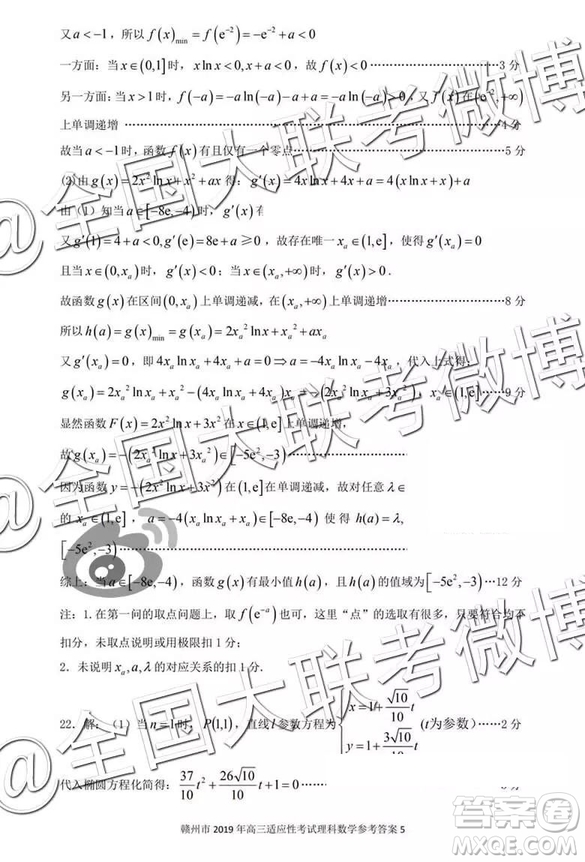 又a<-1，所以f(x)min=f(e^-2)=-e^-2+a<0
一方面：当x∈(0,1]时，x ln x<0,x+a<0，故f(x)<0……3分
另一方面：当x>1时，f(-a)=-a ln(-a)-a+a=-a ln(-a)>0，又f(x)在(e^-2,+∞)
上单调递增……4分
故当a<-1时，函数f(x)有且仅有一个零点……5分
(2)由g(x)=2x²ln x+x²+ax得：g′(x)=4x ln x+4x+a=4(x ln x+x)+a
由（1）知当a∈[-8e,-4)时，g′(x)有
又g′(1)=4+a<0,g′(e)=8e+a≥0，故存在唯一x_a∈(1,e]，使得g′(x_a)=0
且当x∈(0,x_a)时，g′(x)<0；当x∈(x_a,+∞)时，g′(x)>0.
故函数g(x)在区间(0,x_a)上单调递减，在(x_a,+∞)上单调递增……8分
所以h(a)=g(x)min=g(x_a)=2x_a²ln x_a+x_a²+ax_a
又g′(x_a)=0，即4x_a ln x_a+4x_a+a=0⇒a=-4x_a ln x_a-4x_a，代入上式得：
g(x_a)=2x_a²ln x_a+x_a²-(4x_a ln x_a+4x_a)x_a=-(2x_a²ln x_a+3x_a²)，x_a∈(1,e]……9分
显然函数F(x)=2x²ln x+3x²在x∈(1,e]上单调递增，
故g(x_a)=-(2x_a²ln x_a+3x_a²)∈[-5e²,-3)……
因为函数y=-(2x²ln x+3x²)在(1,e]在单调递减，故对任意λ∈
的x_a∈(1,e]，a=-4(x_a ln x_a+x_a)∈[-8e,-4)使得h(a)=λ,
[-5e²,-3)……
综上：当a∈[-8e,-4)，函数g(x)有最小值h(a)，且h(a)的值域为[-5e²,-3)…12分
注：1.在第一问的取点问题上，取f(e^-a)也可，这里“点”的选取有很多，只要符合均不
扣分，未取点说明或用极限扣1分；
2．未说明x_a,a,λ的对应关系的扣1分.
22．解：（1）当n=1时，P(1,1)，直线l参数方程为{x=1+√10/10 t, y=1+3√10/10 t (t为参数)……2分
代入椭圆方程化简得：37/10 t²+26√10/10 t+1=0……
赣州市2019年高三适应性考试理科数学参考答案 5
@全国大联考微博
@全国大联考微博
@全国大联考微博